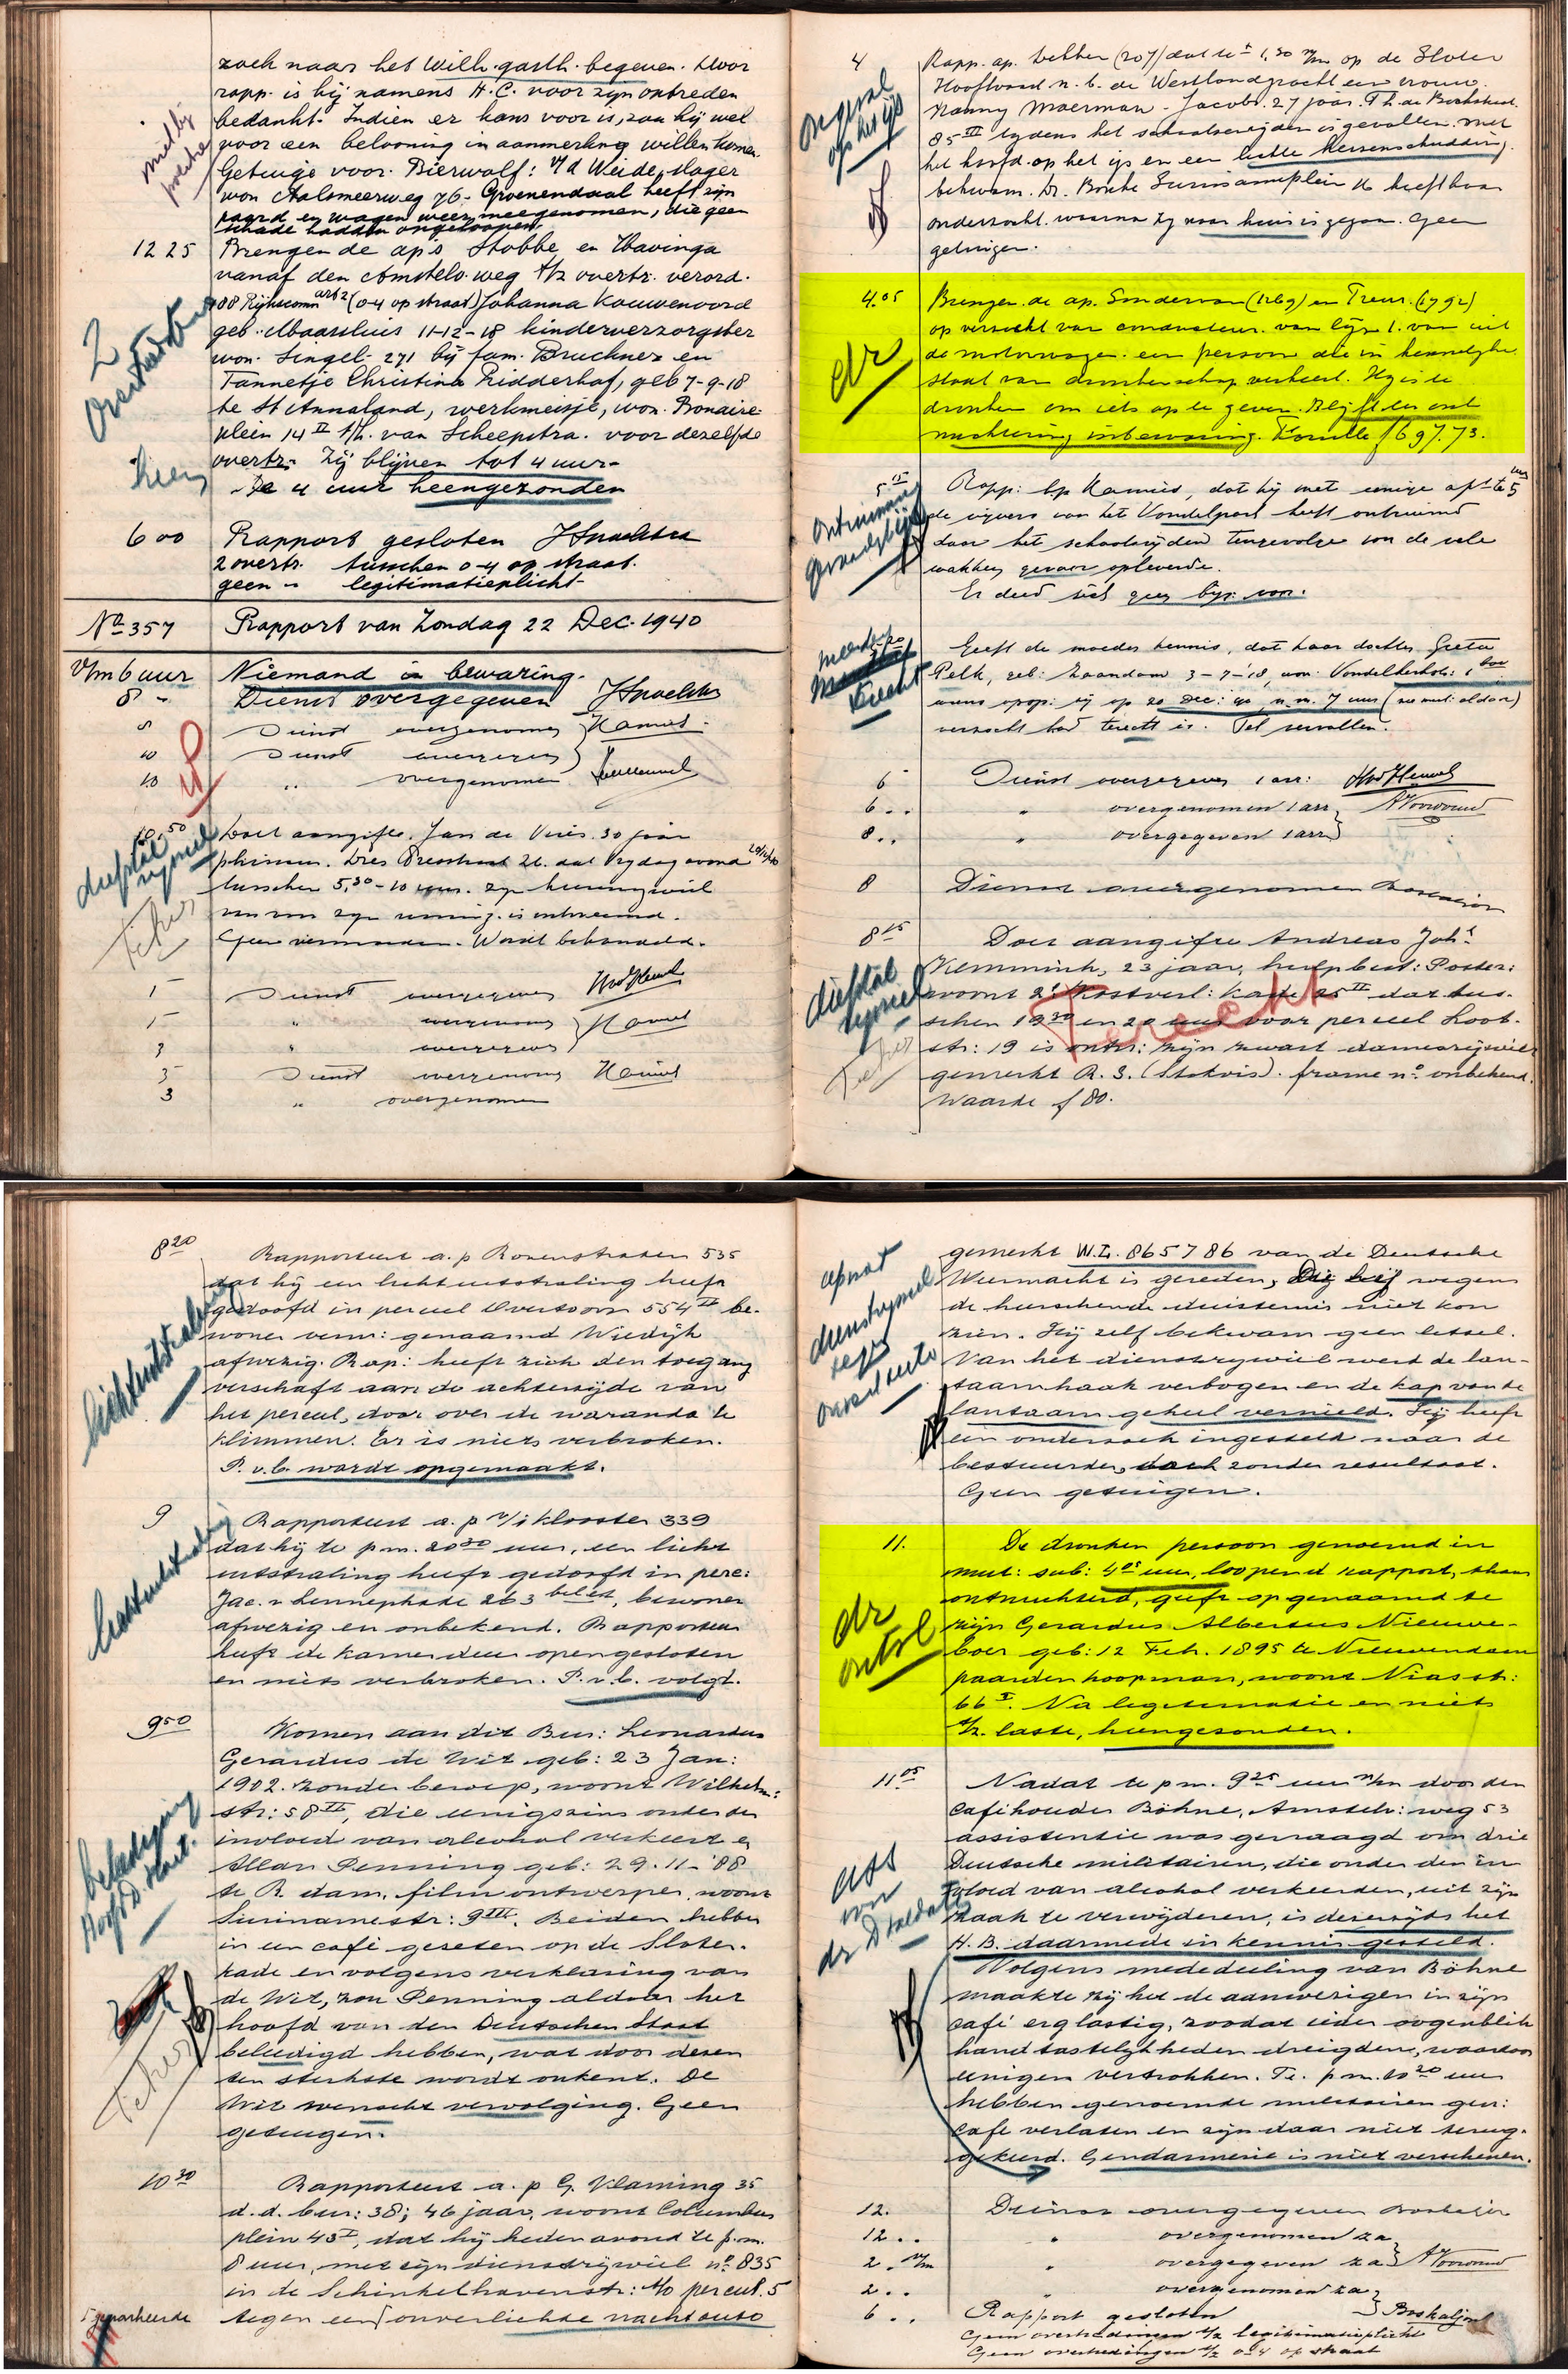 zoek naar het Wilh. gasth. begeven. Door
rapp. is hij namens H.C. voor zijn optreden
bedankt. Indien er kans voor is, zou hij wel
voor een belooning in aanmerking willen komen.
Getuige voor Bierwolf: v/d Weide, slager
won Aalsmeerweg 76. Groenendaal heeft zijn
paard en wagen weer meegenomen, die geen
schade hadden opgeloopen.
12 25 Brengen de ap's Stobbe en Havinga
vanaf den Amstelv. weg t/z overtr. verord.
108 Rijkscomm art 2 (0-4 op straat) Johanna Kouwenoord
geb. Maassluis 11-12-18 kinderverzorgster
won. Singel 271 bij fam. Bruchner en
Tannetje Christina Ridderhof, geb 7-9-18
te St Annaland, werkmeisje, won. Bonaire-
plein 14 II t/h. van Scheepstra. voor dezelfde
overtr. Zij blijven tot 4 uur.
Te 4 uur heengezonden
2 overtredsters
heen
6 00 Rapport gesloten
2 overtr. tusschen 0-4 op straat.
geen " legitimatieplicht
No 357 Rapport van Zondag 22 Dec. 1940
V/m 6 uur Niemand in bewaring.
8 - Dienst overgegeven
8 Dienst overgenomen
10 Dienst overgegeven
10 " overgenomen
10.50 Doet aangifte. Jan de Vries. 30 jaar
dat Vrijdag avond 20/12/40
tusschen 5,30-10 uur. zijn
zijn woning. is ontvreemd.
Geen vermoeden. Wordt behandeld.
diefstal
rijwiel
1 - Dienst overgegeven
1 - " overgenomen
3 " overgegeven
3 - Dienst overgenomen
3 " overgenomen
4 Rapp. ap. Bekker (207) dat te ± 1,30 n/m op de Sloter
Hoofdvaart n. b. de Westlandgracht een vrouw.
Nanny Moerman - Jacobs. 27 jaar. Th. de Bockstraat
85 III tijdens het schaatsenrijden is gevallen. met
het hoofd op het ijs en een lichte hersenschudding.
bekwam. Dr. Surinameplein 16 heeft haar
onderzocht. waarna zij naar huis is gegaan. Geen
getuigen.
ongeval
op het ijs
4.05 Brengen de ap. Sonderman (1269) en Treur. (1792)
op verzoekt van conducteur. van lijn 1. van uit
de motorwagen. een persoon die in kennelijke
staat van dronkenschap verkeert. Hij is te
dronken om iets op te geven. Blijft ter ont
nuchtering inbewaring. f 697.73.
dr
5.15 Rapp: bp Kamies, dat hij met eenige apn te 5 uur
de vijvers van het Vondelpark heeft ontruimd
daar het schaatsrijden tengevolge van de vele
wakken gevaar opleverde.
Er deed zich geen bijz: voor.
ontruiming
Geeft de moeder kennis, dat haar dochter Greta
Pelk, geb: Zaandam 3-7-'18, won: Vondelkerkstr: 1 bov
wiens opsp: zij op 20 Dec: 40, n.m. 7 uur (zie mut: aldaar)
verzocht had terecht is. Tel vervallen.
terecht
6 - Dienst overgegeven 1 arr:
6 . . " overgenomen 1 arr
8 . . " overgegeven 1 arr
8 Dienst overgenomen
8 15 Doet aangifte Andreas Johs
Klemmink, 23 jaar, hulpbest: Poster:
woont 2e Kostverl: kade 25 II dat tus-
schen 19 30 en 20 uur voor perceel Loot-
str: 19 is ontvr: zijn zwart damesrijwiel
gemerkt R.S. (Stokvis). frame no onbekend.
Waarde f 80.
diefstal
rijwiel
Terecht
8 20 Rapporteert a. p Ravenstraten 535
dat hij een lichtuitstraling heeft
gedoofd in perceel Overtoom 554 II be-
woner verm: genaamd Wiedijk
afwezig. Rap: heeft zich den toegang
verschaft aan de achterzijde van
het perceel, door over de waranda te
klimmen. Er is niets verbroken.
P. v.b. wordt opgemaakt.
lichtuitstraling
9 Rapporteert a. p v/d Klooster 339
dat hij te p m. 20 30 uur, een licht
uitstraling heeft gedoofd in perc:
Jac. v Lennepkade 263 bel et, bewoner
afwezig en onbekend. Rapporteur
heeft de kamerdeur opengesloten
en niets verbroken. P. v.b. volgt.
lichtuitstraling
9 50 Komen aan dit Bur: Leonardus
Gerardus de Wit geb: 23 Jan:
1902. zonder beroep, woont Wilhelm:
str: 58 II, die eenigszins onder den
invloed van alcohol verkeert en
Allan Penning geb: 29-11-'88
te R. dam. filmontwerper. woont
Surinamestr: 9 III. Beiden hebben
in een café gezeten op de Sloter-
kade en volgens verklaring van
de Wit, zou Penning aldaar het
hoofd van den Duitschen Staat
beleedigd hebben, wat door dezen
ten sterkste wordt ontkent. De
Wit wenscht vervolging. Geen
getuigen.
belediging
Hoofd D. Staat.
10 30 Rapporteert a. p G. Vlaming 35
d.d. bur: 38; 46 jaar, woont Columbus
plein 43 I, dat hij heden avond te p.m.
8 uur, met zijn dienstrijwiel no 835
in de Schinkelhavenstr: t/o perceel. 5
tegen een onverlichte nachtauto
geparkeerde
gemerkt W.L. 865786 van de Deutsche
Weermacht is gereden, die hij wegens
de heerschende duisternis niet kon
zien. Hij zelf bekwam geen letsel.
Van het dienstrijwiel werd de lan-
taarnhaak verbogen en de kap van de
lantaarn geheel vernield. Hij heeft
een onderzoek ingesteld naar de
bestuurder, doch zonder resultaat.
Geen getuigen.
dienstrijwiel
tegen
11. De dronken persoon genoemd in
mut: sub: 4 05 uur, loopend rapport, thans
ontnuchterd, geeft op genaamd te
zijn Gerardus Albertus Nieuwe-
boer geb: 12 Feb. 1895 te Nieuwendam
paardenkoopman, woont Niasstr:
66 I. Na legitimatie en niets
t/z. laste, heengezonden.
dr
ontsl
11 05 Nadat te p m. 9 25 uur n/m door den
caféhouder Böhne, Amstelv: weg 53
assistentie was gevraagd om drie
Deutsche militairen, die onder den in
vloed van alcohol verkeerden, uit zijn
zaak te verwijderen, is dezerzijds het
H.B. daarmede in kennis gesteld.
Volgens mededeeling van Böhne
maakte zij het de aanwezigen in zijn
café erg lastig, zoodat ieder oogenblik
handtastelijkheden dreigden, waardoor
eenigen vertrokken. Te. p m. 10 20 uur
hebben genoemde militairen gen:
café verlaten en zijn daar niet terug-
gekeerd. Gendarmerie is niet verschenen.
ass
voor
dr D soldaten
12. Dienst overgegeven
12 . . " overgenomen za
2 . v/m " overgegeven za
2 . . " overgenomen za
6 . . Rapport gesloten
Geen overtredingen t/z legitimatieplicht
Geen overtredingen t/z 0-4 op straat